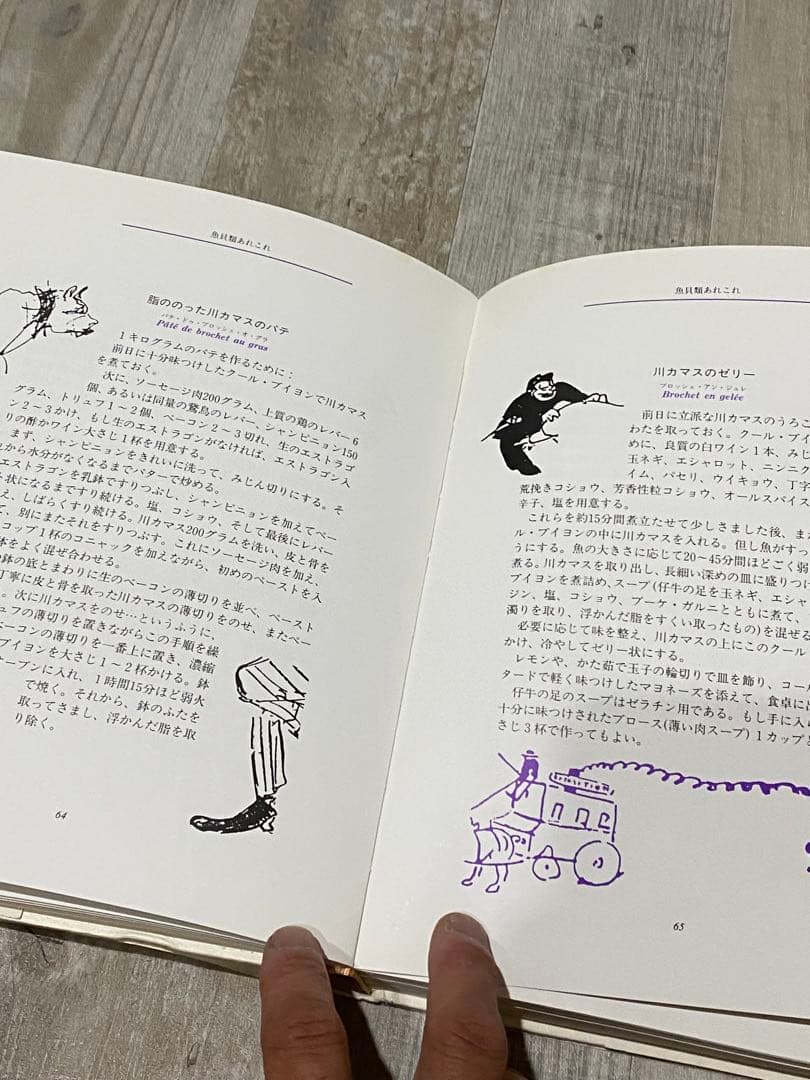 魚貝類あれこれ
脂ののった川カマスのパテ
パテ・ドゥ・ブロッシェ・オ・グラ
Pâté de brochet au gras
1キログラムのパテを作るために：
前日に十分味つけしたクール・ブイヨンで川カマス
を煮ておく。
次に、ソーセージ肉200グラム、上質の鶏のレバー6
個、あるいは同量の鵞鳥のレバー、シャンピニョン150
グラム、トリュフ1〜2個、ベーコン2〜3切れ、生のエストラゴ
ン2〜3かけ、もし生のエストラゴンがなければ、エストラゴン入
りの酢かワイン大さじ1杯を用意する。
まず、シャンピニョンをきれいに洗って、みじん切りにする。そ
れから水分がなくなるまでバターで炒める。
エストラゴンを乳鉢ですりつぶし、シャンピニョンを加えてペー
スト状になるまですり続ける。塩、コショウ、そして最後にレバー
え、しばらくすり続ける。川カマス200グラムを洗い、皮と骨を
て、別にまたそれをすりつぶす。これにソーセージ肉を加え、
コップ1杯のコニャックを加えながら、初めのペーストを入
体をよく混ぜ合わせる。
の鉢の底とまわりに生のベーコンの薄切りを並べ、ペースト
丁寧に皮と骨を取った川カマスの薄切りをのせ、またペー
。次に川カマスをのせ…というふうに、
ュフの薄切りを置きながらこの手順を繰
ベーコンの薄切りを一番上に置き、濃縮
ブイヨンを大さじ1〜2杯かける。鉢
オーブンに入れ、1時間15分ほど弱火
で焼く。それから、鉢のふたを
取ってさまし、浮かんだ脂を取
り除く。
64
魚貝類あれこれ
川カマスのゼリー
ブロッシェ・アン・ジュレ
Brochet en gelée
前日に立派な川カマスのうろこ
わたを取っておく。クール・ブイ
めに、良質の白ワイン1本、みじ
玉ネギ、エシャロット、ニンニク
イム、パセリ、ウイキョウ、丁字
荒挽きコショウ、芳香性粒コショウ、オールスパイス
辛子、塩を用意する。
これらを約15分間煮立たせて少しさました後、また
ル・ブイヨンの中に川カマスを入れる。但し魚がすっ
うにする。魚の大きさに応じて20〜45分間ほどごく弱
煮る。川カマスを取り出し、長細い深めの皿に盛りつけ
ブイヨンを煮詰め、スープ（仔牛の足を玉ネギ、エシャ
ジン、塩、コショウ、ブーケ・ガルニとともに煮て、
濁りを取り、浮かんだ脂をすくい取ったもの）を混ぜる
必要に応じて味を整え、川カマスの上にこのクール
かけ、冷やしてゼリー状にする。
レモンや、かた茹で玉子の輪切りで皿を飾り、コー
タードで軽く味つけしたマヨネーズを添えて、食卓に出
仔牛の足のスープはゼラチン用である。もし手に入ら
十分に味つけされたブロース（薄い肉スープ）1カップと
さじ3杯で作ってもよい。
65